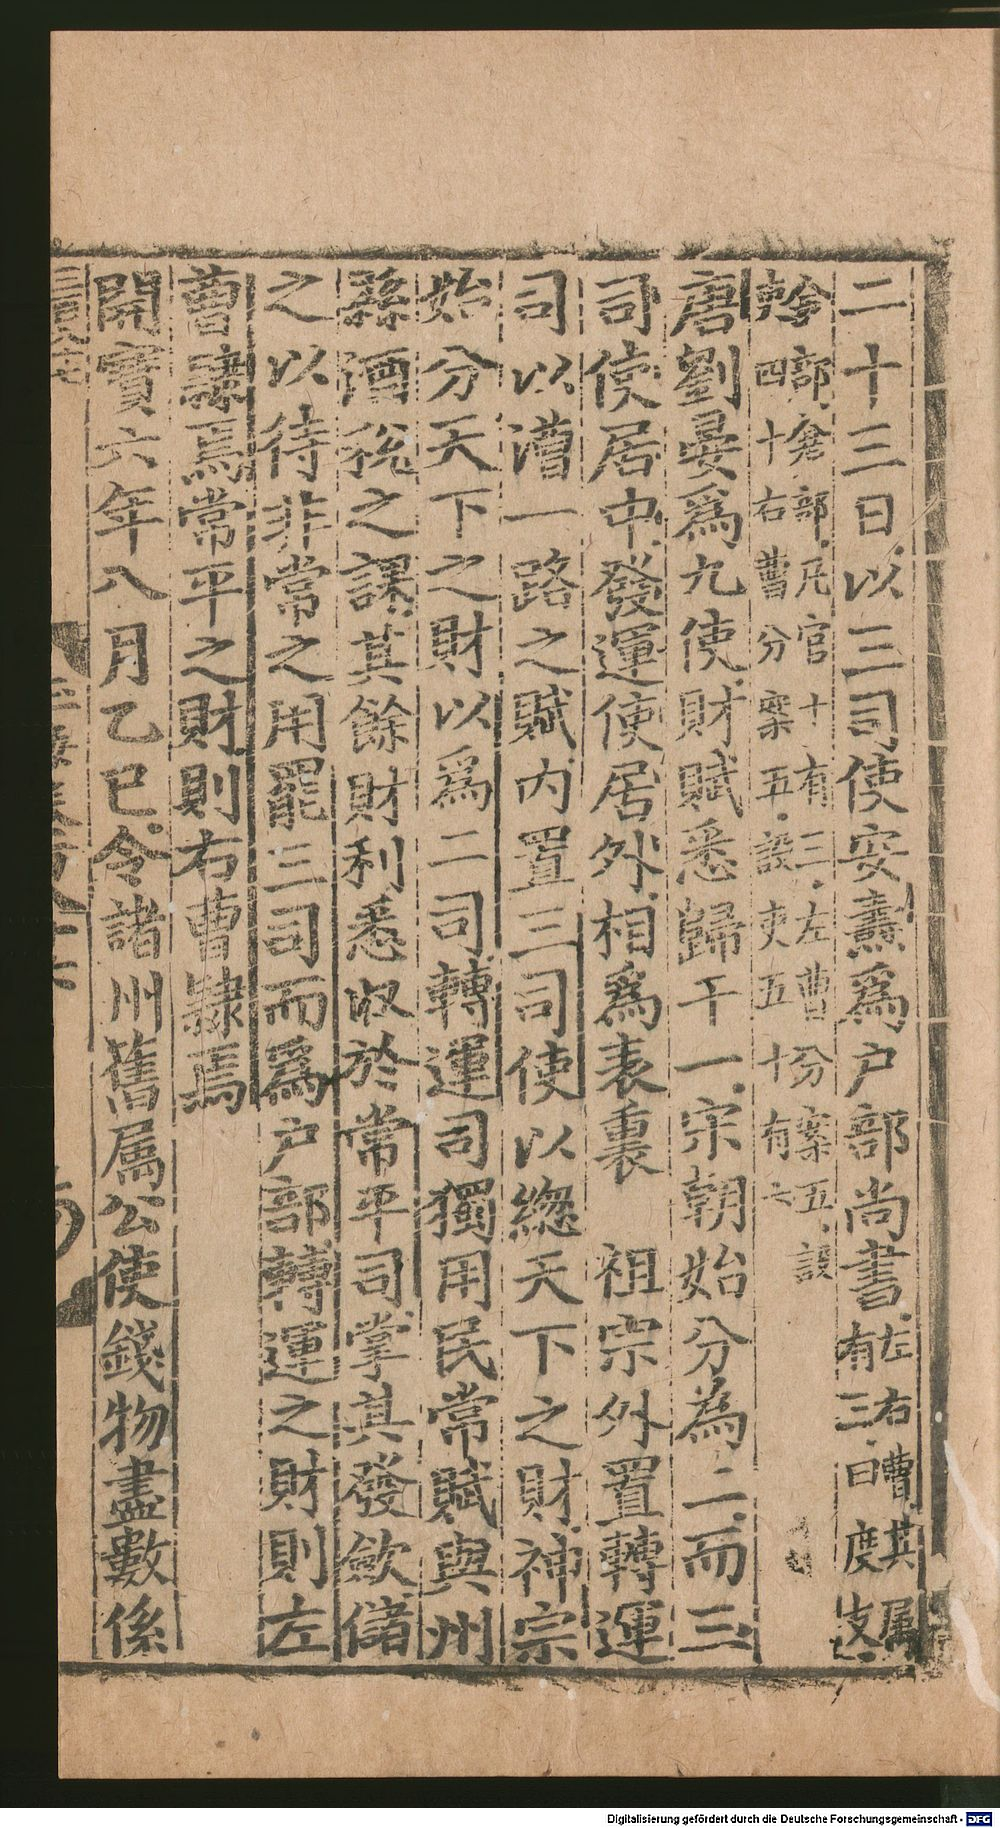 二十三日以三司使安燾爲户部尚書左右曹其属有三曰度支
金部倉部凡官十有三左曹分案五設
四十右曹分案五設吏五十有六
唐劉晏爲九使財賦悉歸于一宗朝始分為二而三
司使居中發運使居外相爲表裏　祖宗外置轉運
司以漕一路之賦内置三司使以緫天下之財神宗
始分天下之財以爲二司轉運司獨用民常賦與州
縣酒稅之課其餘財利悉收於常平司掌其發歛儲
之以待非常之用罷三司而爲户部轉運之財則左
曹隷焉常平之財則右曹隷焉
開寶六年八月乙巳令諸州舊属公使錢物盡數係
Digitalisierung gefördert durch die Deutsche Forschungsgemeinschaft - DFG